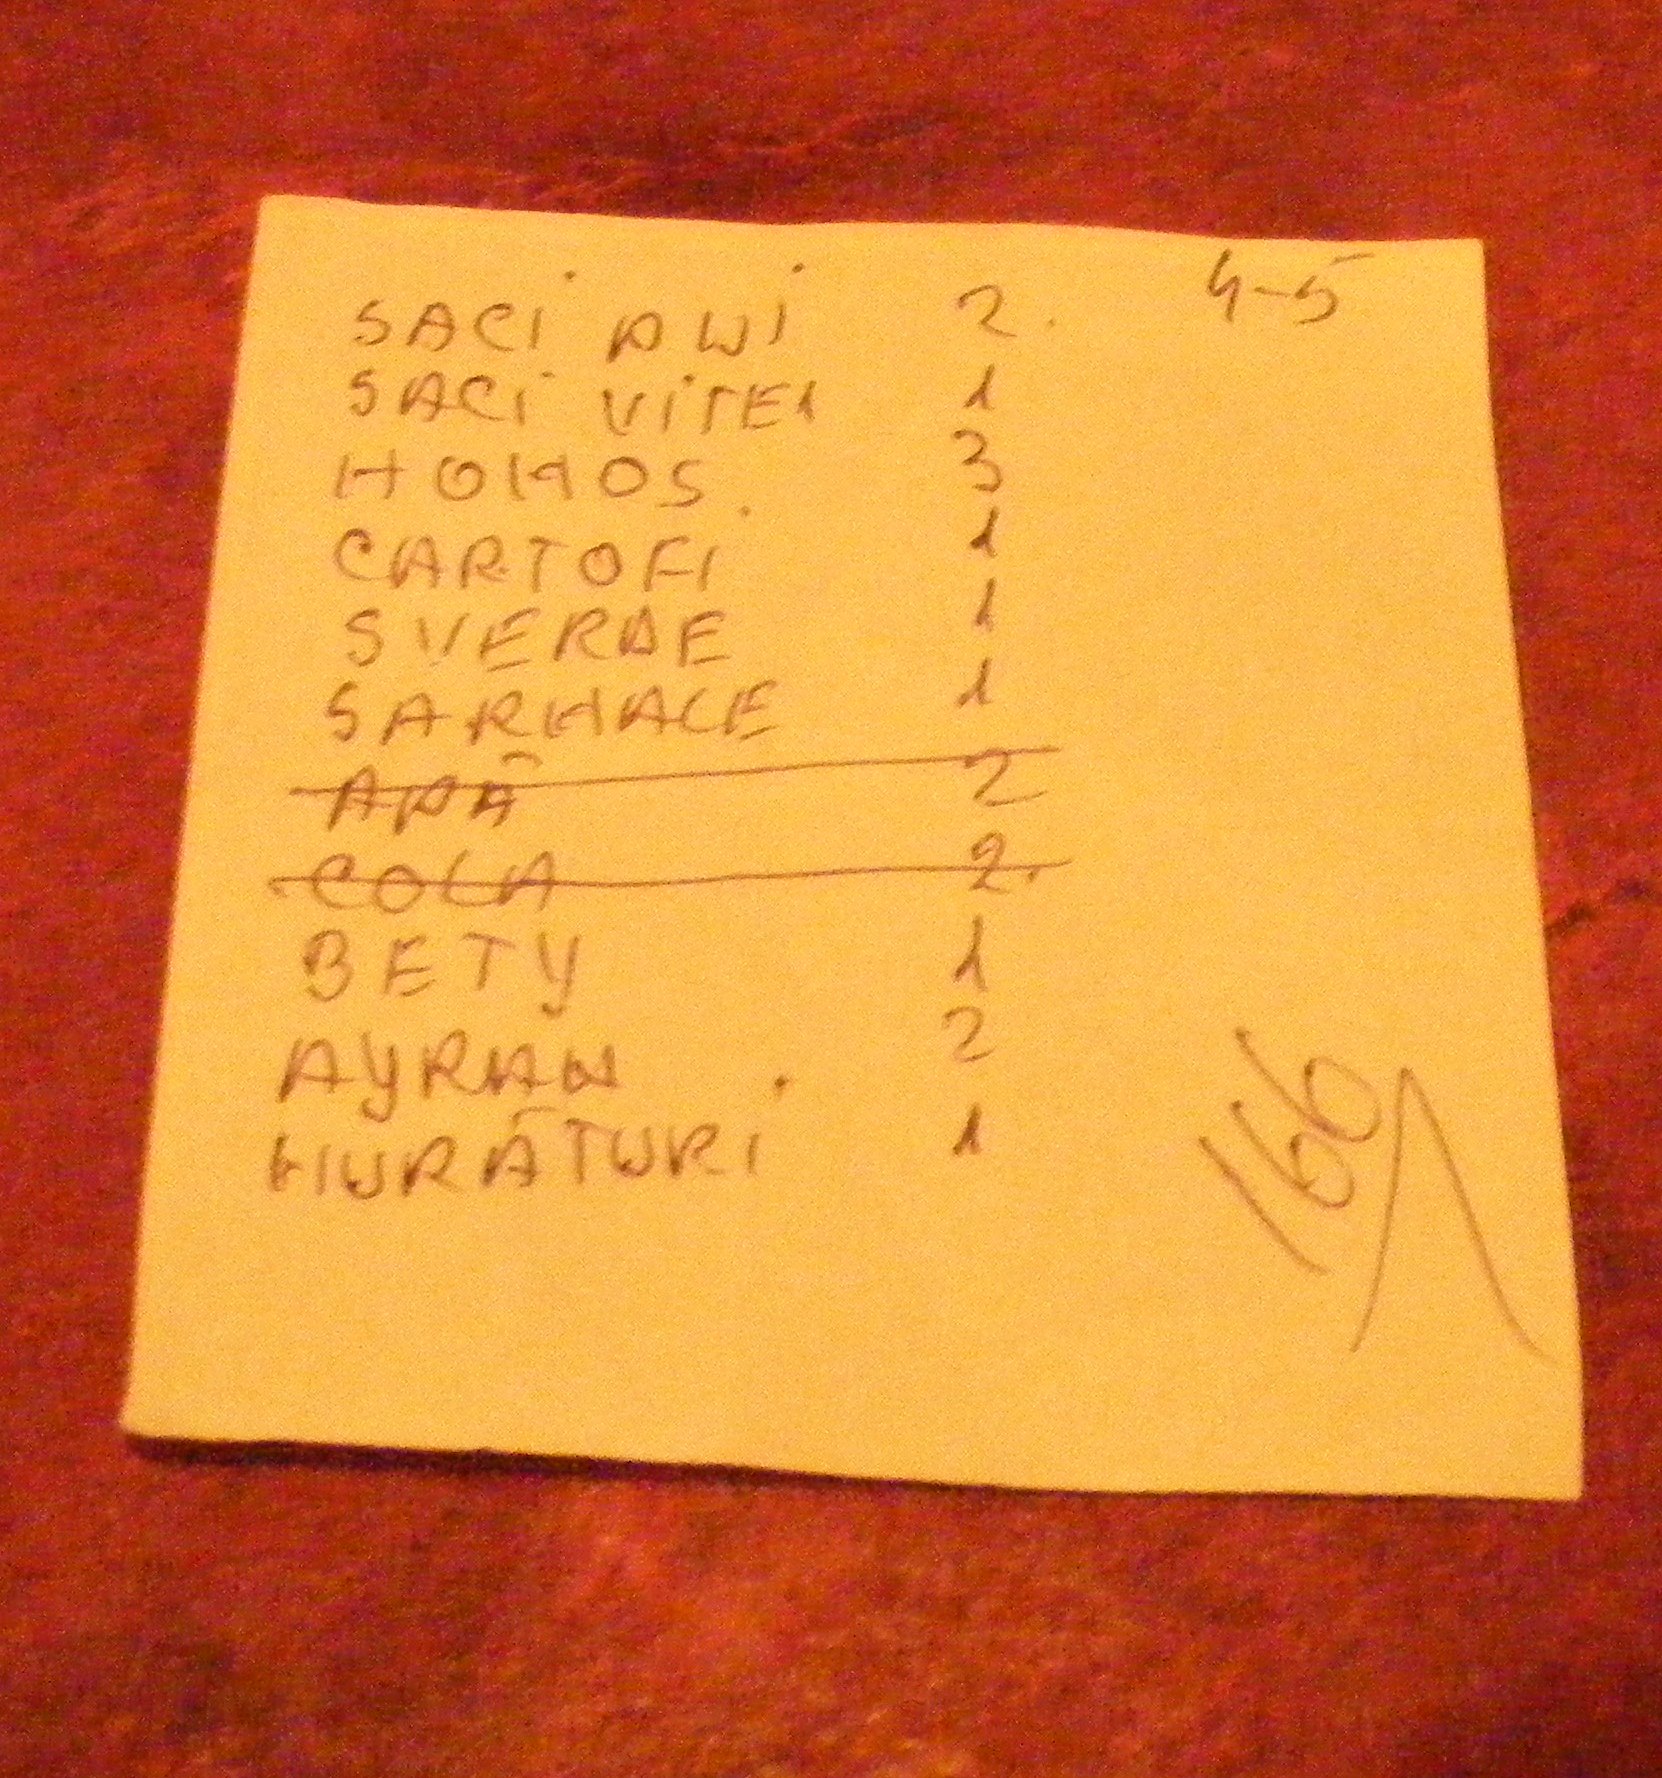 SACI PUI 2. 4-5
SACI VITEL 1
HOMOS 3
CARTOFI 1
SVERDE 1
SARMALE 1
APĂ 2
COLA 2.
BETY 1
AYRAN 2
MURĂTURI 1
166